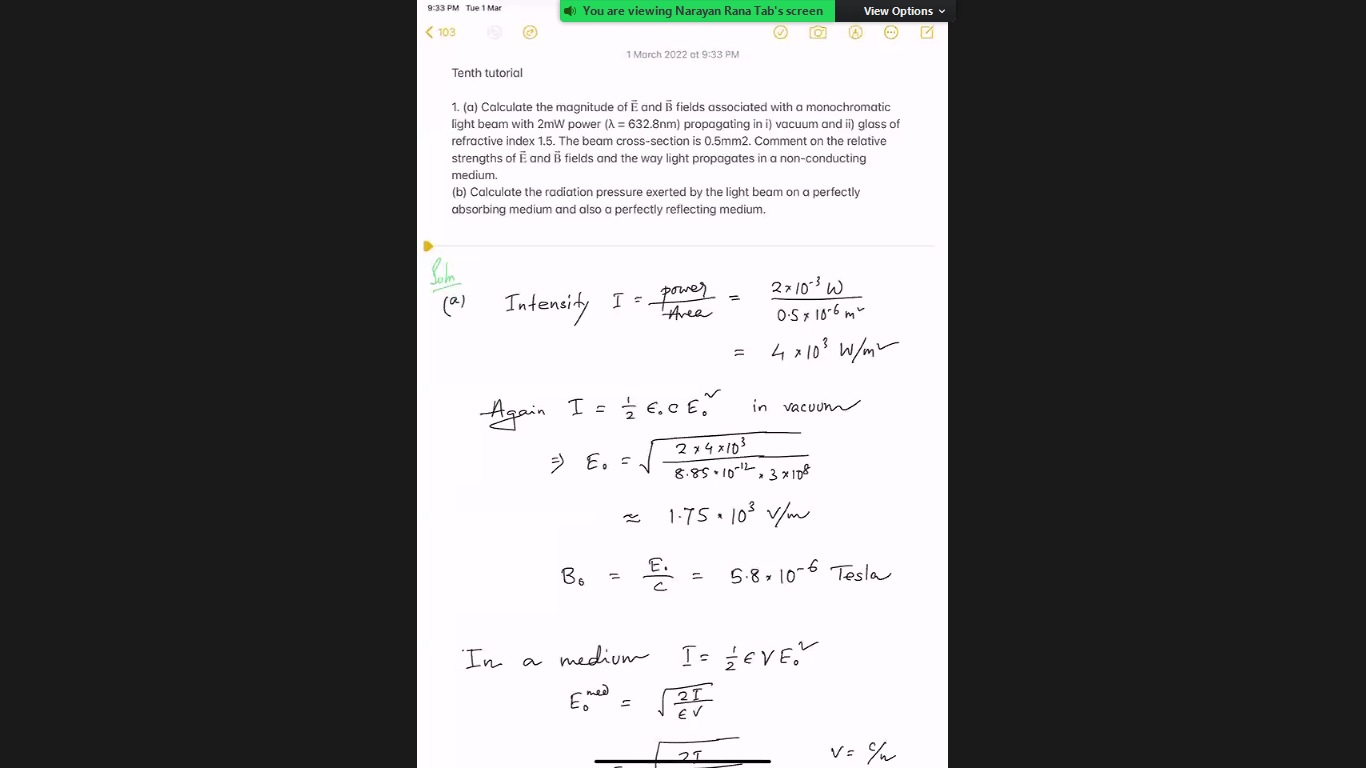 9:33 PM Tue 1 Mar
You are viewing Narayan Rana Tab's screen
View Options
103
1 March 2022 at 9:33 PM
Tenth tutorial
1. (a) Calculate the magnitude of E⃗ and B⃗ fields associated with a monochromatic
light beam with 2mW power (λ = 632.8nm) propagating in i) vacuum and ii) glass of
refractive index 1.5. The beam cross-section is 0.5mm2. Comment on the relative
strengths of E⃗ and B⃗ fields and the way light propagates in a non-conducting
medium.
(b) Calculate the radiation pressure exerted by the light beam on a perfectly
absorbing medium and also a perfectly reflecting medium.
Soln
(a) Intensity I = power/Area = 2×10⁻³ W / 0.5×10⁻⁶ m²
= 4×10³ W/m²
Again I = ½ ε₀ c E₀² in vacuum
⇒ E₀ = √(2×4×10³ / 8.85×10⁻¹²×3×10⁸)
≈ 1.75×10³ V/m
B₀ = E₀/c = 5.8×10⁻⁶ Tesla
In a medium I = ½ ε V E₀²
E₀ᵐᵉᵈ = √(2I / εV)
2I V = c/n